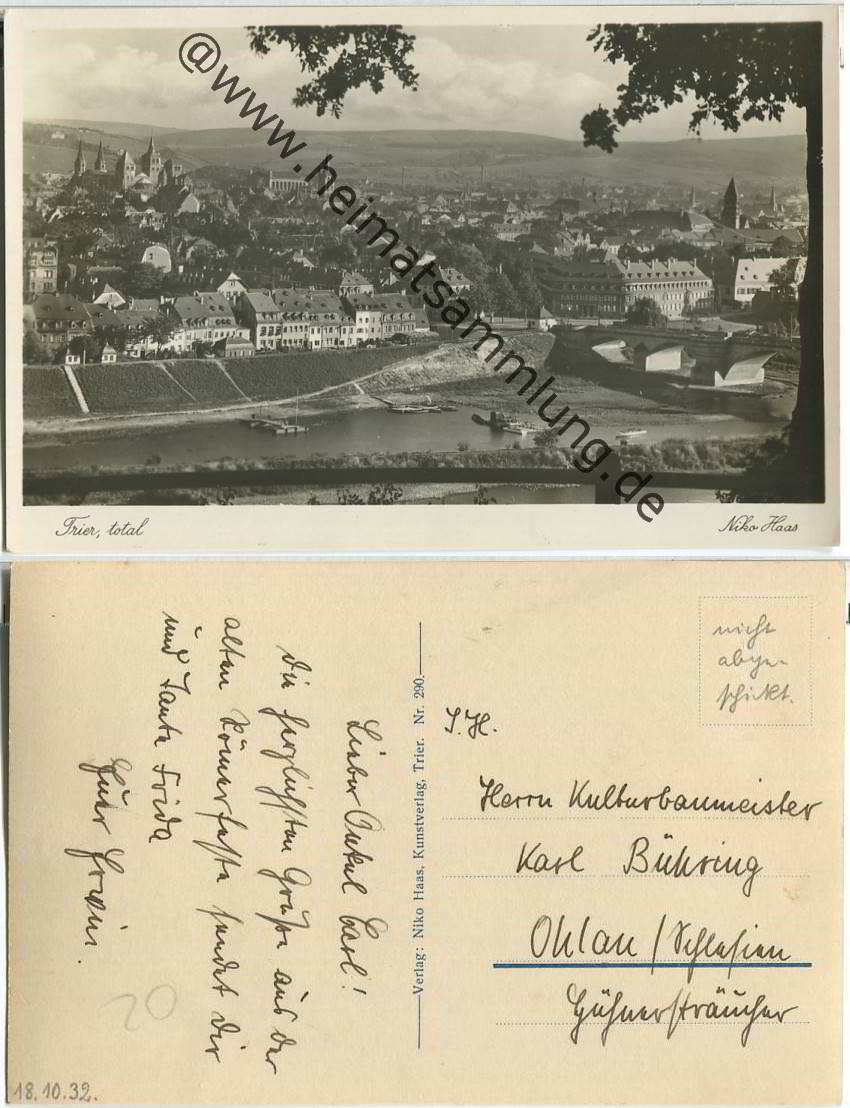 @www.heimatsammlung.de
Trier, total
Niko Haas
nicht
abge-
schickt.
S.H.
Herrn Kulturbaumeister
Karl Bühring
Ohlau / Schlesien
Verlag: Niko Haas, Kunstverlag, Trier. Nr. 290.
Lieber Onkel Carl!
Die herzlichsten Grüße aus der
alten Römerfeste sendet Dir
und Tante Frida
Euer Erwin.
20
18.10.32.